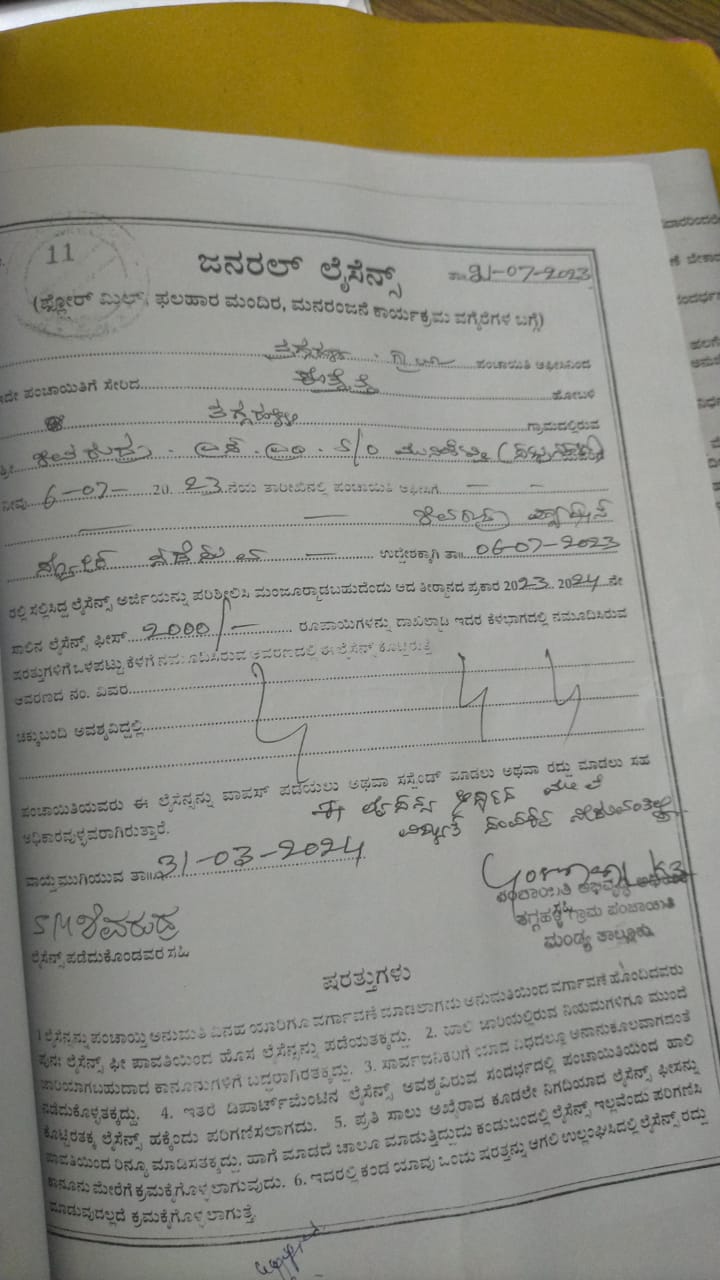 11
ಜನರಲ್ ಲೈಸೆನ್ಸ್ ತಾ॥ 31-07-2023
(ಫ್ಲೋರ್ ಮಿಲ್, ಫಲಹಾರ ಮಂದಿರ, ಮನರಂಜನೆ ಕಾರ್ಯಕ್ರಮ ವಗೈರೆಗಳ ಬಗ್ಗೆ)
ತಗ್ಗಹಳ್ಳಿ . ಗ್ರಾ ಪಂಚಾಯಿತಿ ಆಫೀಸಿನಿಂದ
ಇದೇ ಪಂಚಾಯಿತಿಗೆ ಸೇರಿದ ಹೋಬಳಿ
ತಗ್ಗಹಳ್ಳಿ ಗ್ರಾಮದಲ್ಲಿರುವ
ಶ್ರೀ ಶಿವರುದ್ರ . ಎಸ್ . ಎಂ . S/O
ನೀವು 6-07- 20 23 ನೆಯ ತಾರೀಖಿನಲ್ಲಿ ಪಂಚಾಯಿತಿ ಆಫೀಸಿಗೆ - -
ಉದ್ದೇಶಕ್ಕಾಗಿ ತಾ॥ 06-07-2023
ರಲ್ಲಿ ಸಲ್ಲಿಸಿದ್ದ ಲೈಸೆನ್ಸ್ ಅರ್ಜಿಯನ್ನು ಪರಿಶೀಲಿಸಿ ಮಂಜೂರ್ಮಾಡಬಹುದೆಂದು ಆದ ತೀರ್ಮಾನದ ಪ್ರಕಾರ 2023 2024 ನೇ
ಸಾಲಿನ ಲೈಸೆನ್ಸ್ ಫೀಸ್ 2000/- ರೂಪಾಯಿಗಳನ್ನು ದಾಖಲ್ಮಾಡಿ ಇದರ ಕೆಳಭಾಗದಲ್ಲಿ ನಮೂದಿಸಿರುವ
ಷರತ್ತುಗಳಿಗೆ ಒಳಪಟ್ಟು ಕೆಳಗೆ ನಮೂದಿಸಿರುವ ಆವರಣದಲ್ಲಿ ಈ ಲೈಸೆನ್ಸ್ ಕೊಟ್ಟಿರುತ್ತೆ
ಆವರಣದ ನಂ. ವಿವರ
ಚಕ್ಕುಬಂದಿ ಅವಶ್ಯವಿದ್ದಲ್ಲಿ
ಪಂಚಾಯಿತಿಯವರು ಈ ಲೈಸೆನ್ಸನ್ನು ವಾಪಸ್ ಪಡೆಯಲು ಅಥವಾ ಸಸ್ಪೆಂಡ್ ಮಾಡಲು ಅಥವಾ ರದ್ದು ಮಾಡಲು ಸಹ
ಅಧಿಕಾರವುಳ್ಳವರಾಗಿರುತ್ತಾರೆ.
ಈ ಲೈಸೆನ್ಸ್ ಆಧಾರದ ಮೇಲೆ
ವಿದ್ಯುತ್ ಸಂಪರ್ಕ
ವಾಯ್ದೆ ಮುಗಿಯುವ ತಾ॥ 31-03-2024
ಪಂಚಾಯಿತಿ ಅಭಿವೃದ್ಧಿ ಅಧಿಕಾರಿ
ಸಹಿ
ತಗ್ಗಹಳ್ಳಿ ಗ್ರಾಮ ಪಂಚಾಯಿತಿ
ಮಂಡ್ಯ ತಾಲ್ಲೂಕು
SM ಶಿವರುದ್ರ
ಲೈಸೆನ್ಸ್ ಪಡೆದುಕೊಂಡವರ ಸಹಿ
ಷರತ್ತುಗಳು
1 ಲೈಸೆನ್ಸನ್ನು ಪಂಚಾಯ್ತಿ ಅನುಮತಿ ವಿನಹ ಯಾರಿಗೂ ವರ್ಗಾವಣೆ ಮಾಡಲಾಗದು ಅನುಮತಿಯಿಂದ ವರ್ಗಾವಣೆ ಹೊಂದಿದವರು
ಪುನಃ ಲೈಸೆನ್ಸ್ ಫೀ ಪಾವತಿಯಿಂದ ಹೊಸ ಲೈಸೆನ್ಸನ್ನು ಪಡೆಯತಕ್ಕದ್ದು. 2. ಹಾಲಿ ಜಾರಿಯಲ್ಲಿರುವ ನಿಯಮಗಳಿಗೂ ಮುಂದೆ
ಜಾರಿಯಾಗಬಹುದಾದ ಕಾನೂನುಗಳಿಗೆ ಬದ್ಧರಾಗಿರತಕ್ಕದ್ದು. 3. ಸಾರ್ವಜನಿಕರಿಗೆ ಯಾವ ವಿಧದಲ್ಲೂ ಅನಾನುಕೂಲವಾಗದಂತೆ
ನಡೆದುಕೊಳ್ಳತಕ್ಕದ್ದು. 4. ಇತರೆ ಡಿಪಾರ್ಟ್‌ಮೆಂಟಿನ ಲೈಸೆನ್ಸ್ ಅವಶ್ಯವಿರುವ ಸಂದರ್ಭದಲ್ಲಿ ಪಂಚಾಯಿತಿಯಿಂದ ಹಾಲಿ
ಕೊಟ್ಟಿರತಕ್ಕ ಲೈಸೆನ್ಸ್ ಹಕ್ಕೆಂದು ಪರಿಗಣಿಸಲಾಗದು. 5. ಪ್ರತಿ ಸಾಲು ಅಖೈರಾದ ಕೂಡಲೇ ನಿಗದಿಯಾದ ಲೈಸೆನ್ಸ್ ಫೀಸನ್ನು
ಪಾವತಿಯಿಂದ ರಿನ್ಯೂ ಮಾಡಿಸತಕ್ಕದ್ದು, ಹಾಗೆ ಮಾಡದೆ ಚಾಲೂ ಮಾಡುತ್ತಿದ್ದುದು ಕಂಡುಬಂದಲ್ಲಿ ಲೈಸೆನ್ಸ್ ಇಲ್ಲವೆಂದು ಪರಿಗಣಿಸಿ
ಕಾನೂನು ಮೇರೆಗೆ ಕ್ರಮಕೈಗೊಳ್ಳಲಾಗುವುದು. 6. ಇದರಲ್ಲಿ ಕಂಡ ಯಾವು ಒಂದು ಷರತ್ತನ್ನು ಆಗಲಿ ಉಲ್ಲಂಘಿಸಿದಲ್ಲಿ ಲೈಸೆನ್ಸ್ ರದ್ದು
ಮಾಡುವುದಲ್ಲದೆ ಕ್ರಮಕೈಗೊಳ್ಳಲಾಗುತ್ತೆ.